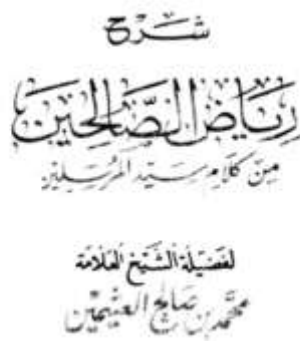 شرح
رياض الصالحين
من كلام سيد المرسلين
لفضيلة الشيخ العلامة
محمد بن صالح العثيمين